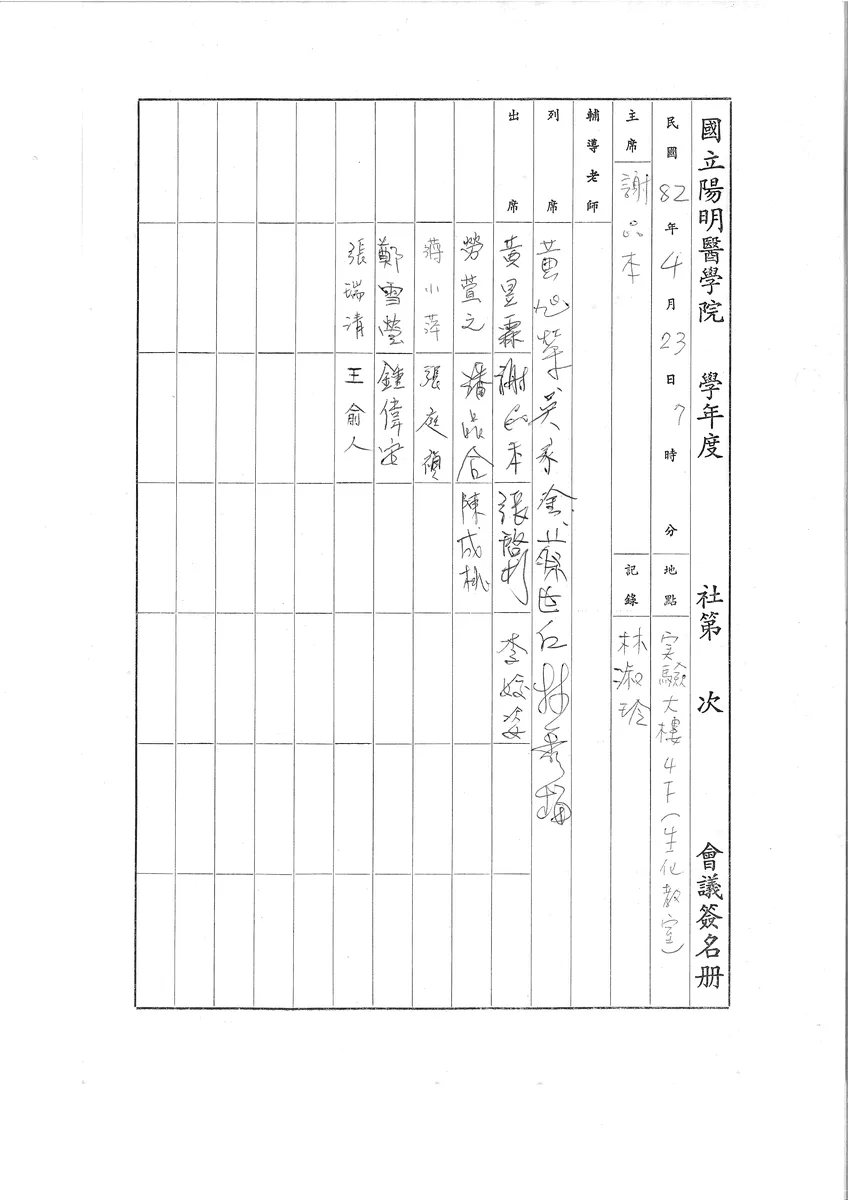 國立陽明醫學院 學年度 社第 次 會議簽名冊
民國82年4月23日7時 分 地點 实驗大樓4F(生化教室)
主席 謝品本 記錄 林淑玲
輔導老師
列席
出席 黃昱霖 謝品本 張啓彬 李姣姿
勞萱之 潘品合 陳成桃
蔣小萍 張庭禎
鄭雪瑩 鍾偉安
張瑞清 王俞人